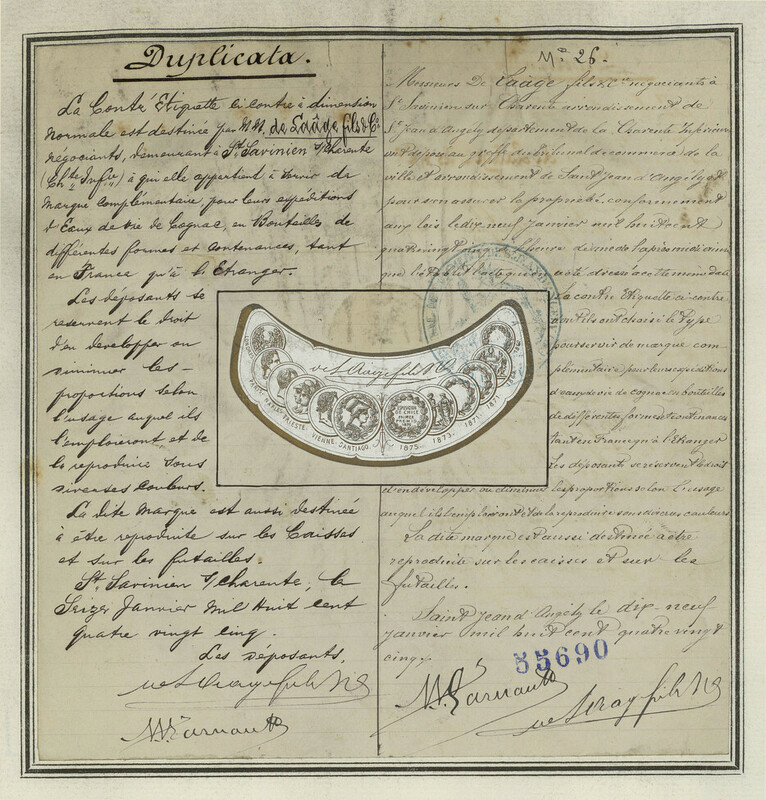 Duplicata.
La Contre Etiquette ci contre à dimension
normale est destinée par M.M. de Laâge fils & Cie
négociants, demeurant à St. Savinien s/Charente
(Chte Infre) à qui elle appartient à servir de
Marque complémentaire, pour leurs expéditions
d'Eaux de Vie de Cognac, en Bouteilles de
différentes formes et contenances, tant
en France qu'à l'Etranger.
Les déposants se
reservent le droit
d'en developper ou
diminuer les
proportions selon
l'usage auquel ils
l'emploieront et de
la reproduire sous
diverses couleurs.
La dite Marque est aussi destinée
à être reproduite sur les Caisses
et sur les futailles.
St. Savinien s/Charente, le
Seize Janvier Mil Huit cent
quatre vingt cinq.
Les Déposants,
de Laage fils & Co
No 26.
Messieurs De Laâge fils & Cie négociants à
St Savinien sur Charente arrondissement de
St Jean d'Angély département de la Charente Inférieure
ont déposé au greffe du tribunal de commerce de la
ville et arrondissement de Saint Jean d'Angély et
pour s'en assurer la propriété conformément
aux lois le dix neuf janvier mil huit cent
quatre vingt heure de l'après midi ainsi
que a été dressé acte
la contre Etiquette ci contre
dont ils ont choisi le type
pour servir de marque com
plémentaire pour leurs expéditions
d'eaux de vie de cognac en bouteilles
de différentes formes et contenances
tant en France qu'à l'Etranger
Les déposants se réservent le droit
d'en développer ou diminuer les proportions selon l'usage
auquel ils l'emploieront et de la reproduire sous diverses couleurs
La dite marque est aussi destinée à être
reproduite sur les caisses et sur les
futailles.
Saint Jean d'Angély le dix-neuf
janvier mil huit cent quatre vingt
cinq.
55690
de Laage fils & Co
de Laage fils & Co
VIENNE. SANTIAGO.
1875. 1873. 1871. 1871